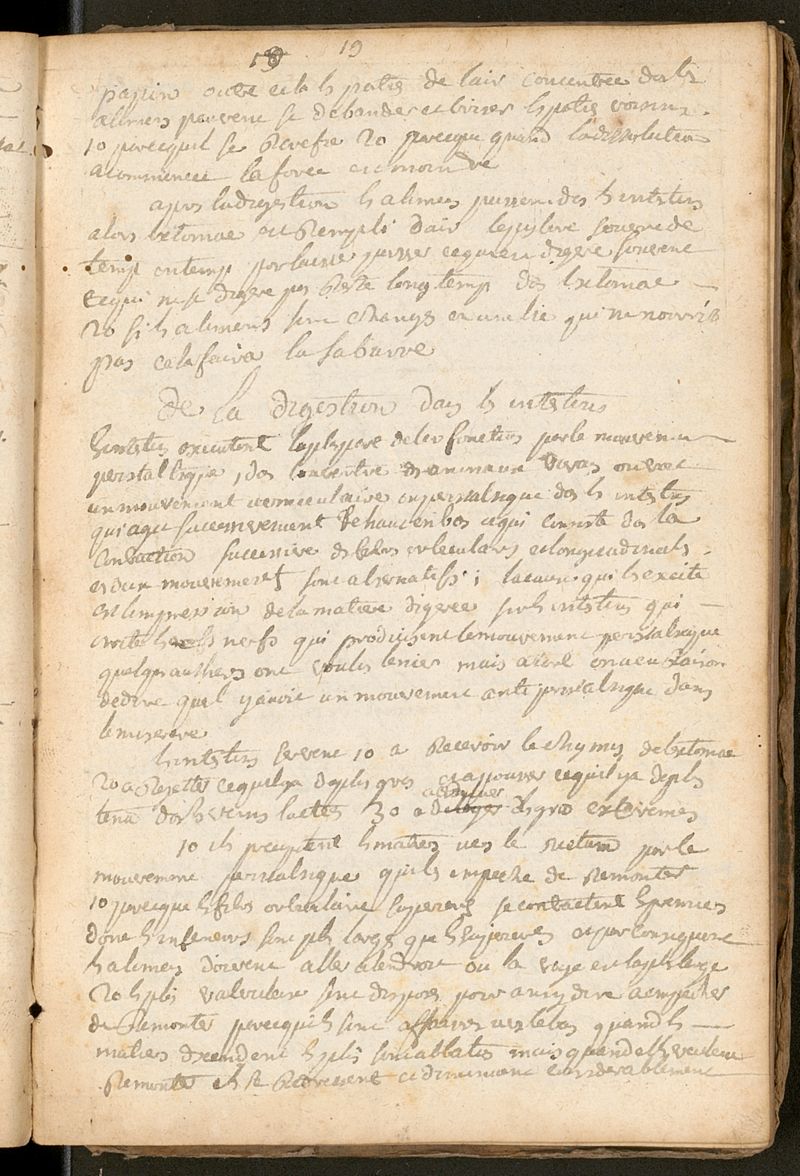 19
papin outre cela h parties de lair concentrée ds h
alimens peuvent se debander et briser h parties voisin
10 parcequil se Rarefie 20 parceque quand la dissolution
a commencé la force est moindre
apres la digestion h alimens passent ds h intestins
alors lestomac est Rempli dair le pylore souvre de
temp en temp pour laisser passer ce qui est digere souvent
ce qui ne se digere pas Reste long temp ds lestomac
20 si h alimens sont changés en une lie qui ne nourrit
pas cela faira la saburre
De la digestion dans h intestins
h intestins executent la pluspart de leur fonctions par le mouvement
peristaltique, dans louverture danimaux vivans on voit
un mouvement vermiculaire ou peristaltique ds h intestins
qui agit successivement de haut en bas ce qui consiste ds la
contraction successive de fibres orbiculaires et longitudinales
ces deux mouvement sont alternatifs; la cause qui h excite
est limpression de la matiere digerée sur h intestins qui
irrite h nerfs qui produisent le mouvement peristaltique
quelques autheurs ont voulu le nier mais a tort on a eu Raison
de dire quil y avoit un mouvement anti peristaltique dans
le miserere
h intestins servent 10 a Recevoir le chymus de lestomac
20 a Rejetter ce quil y a de plus gros et a pousser ce quil y a de plus
tenu ds h veines lactées 30 a h gros excremens
10 ils precipitent h matieres vers le rectum par le
mouvement peristaltique quils empeche de Remonter
10 parceque h fibres orbiculaire superieures se contractent h premieres
donc h inferieures sont plus larges que h superieures et par consequent
h alimens doivent aller a lendroit ou la voye est la plus large
20 h plis valvulaire sont disposés pour ainsi dire a empecher
de Remonter parcequils sont vers le bas quand h
matieres descendent h plis sont abbatus mais quand elles veulent
Remonter ils se Redressent et diminuent considerablement